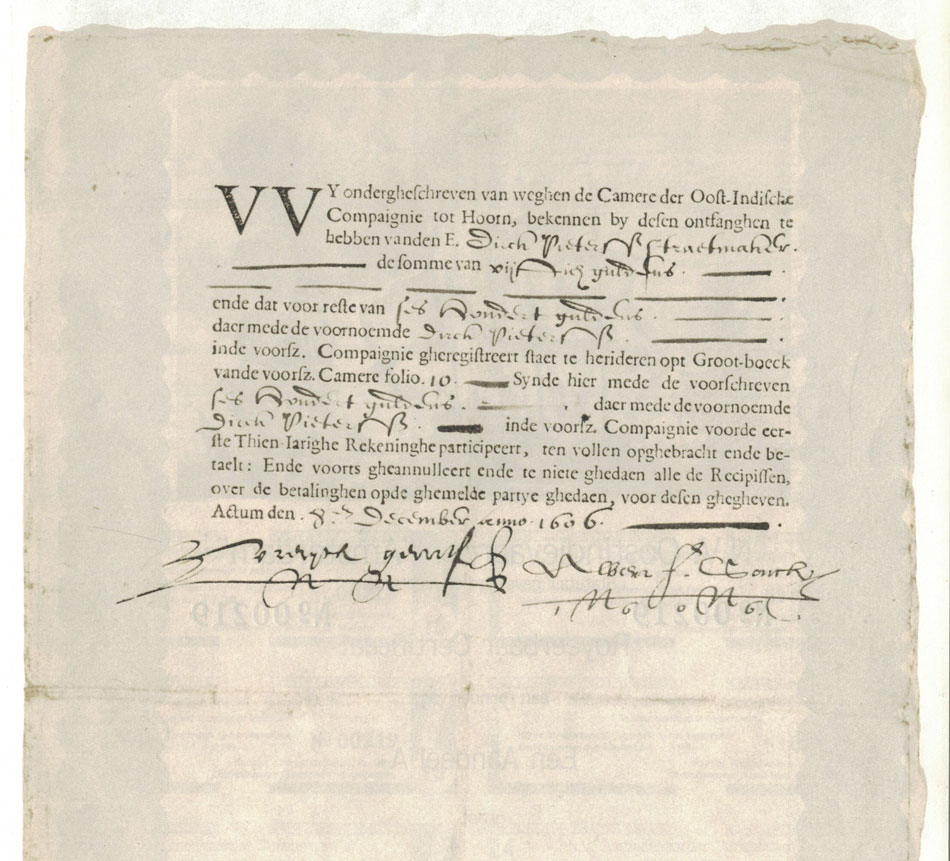 VVY ondergheschreven van weghen de Camere der Oost-Indische
Compaignie tot Hoorn, bekennen by desen ontfanghen te
hebben vanden E. Dirck Pietersz Straetmaker.
de somme van vijftich guldens.
ende dat voor reste van ses hondert guldens.
daer mede de voornoemde Dirck Pietersz.
inde voorsz. Compaignie gheregistreert staet te herideren opt Groot-boeck
vande voorsz. Camere folio. 10. Synde hier mede de voorschreven
ses hondert guldens. daer mede de voornoemde
Dirck Pietersz. inde voorsz. Compaignie voorde eer-
ste Thien-Iarighe Rekeninghe participeert, ten vollen opghebracht ende be-
taelt: Ende voorts gheannulleert ende te niete ghedaen alle de Recipissen,
over de betalinghen opde ghemelde partye ghedaen, voor desen ghegheven.
Actum den. 8en December anno. 1606.
Nº 00219 Nº 00219
Royeerbaar Certificaat
Nº 00219
Een Aandeel A